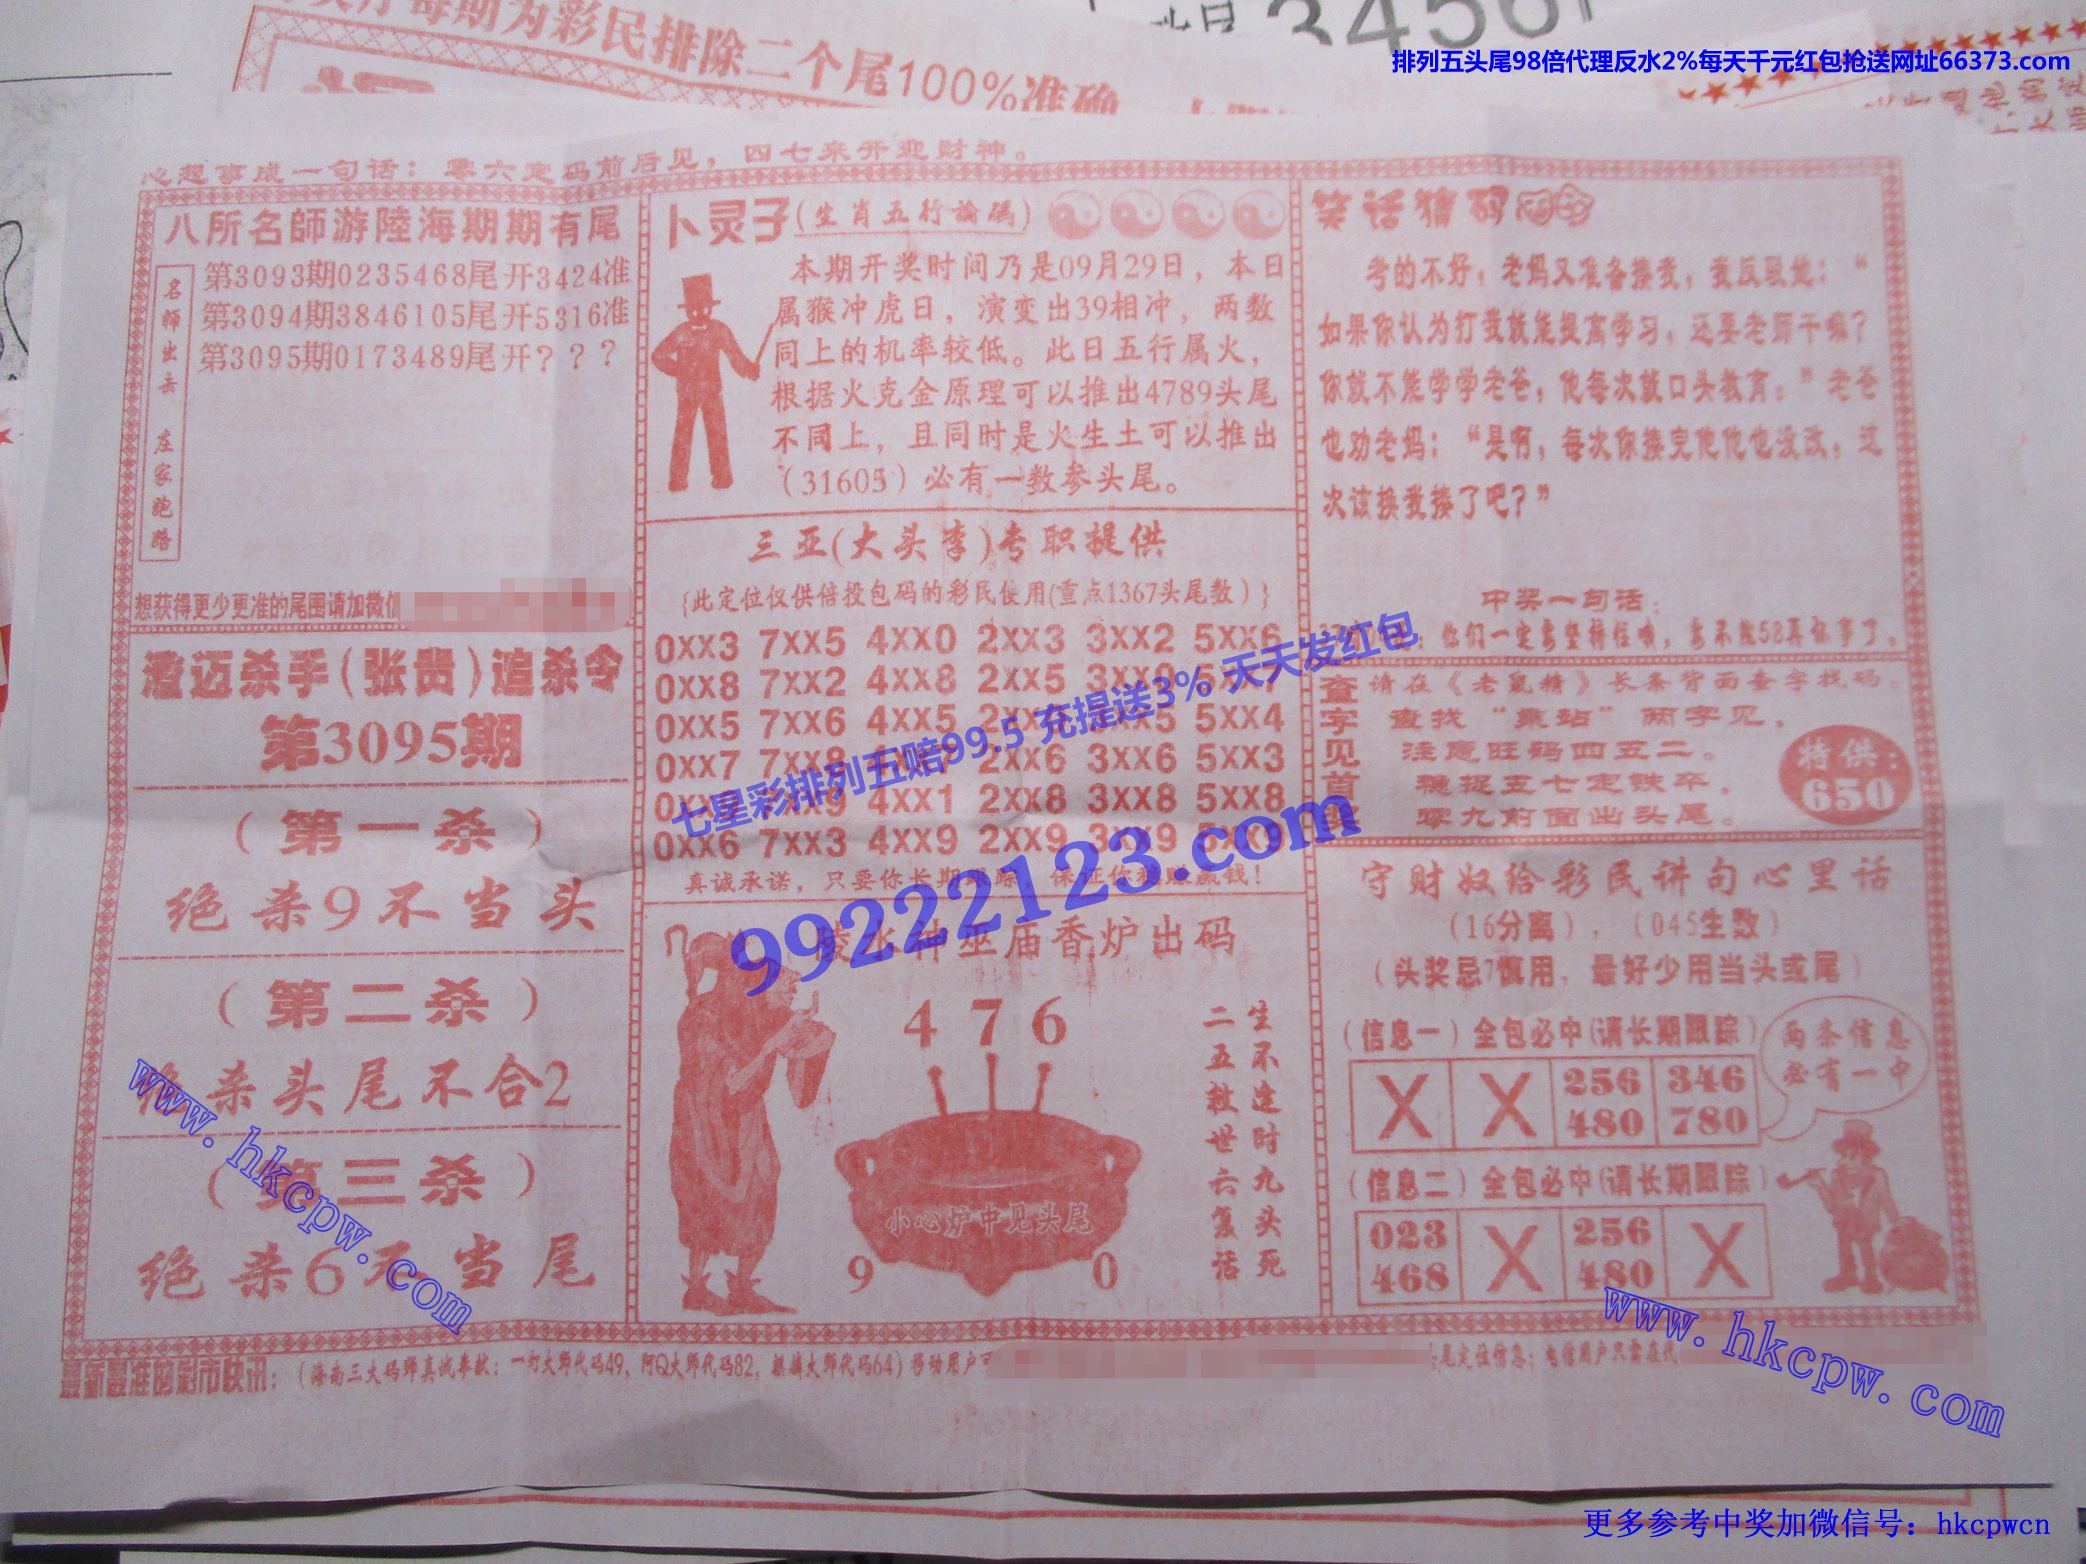 每期为彩民排除二个尾100%准确
3456
排列五头尾98倍代理反水2%每天千元红包抢送网址66373.com
心想事成一句话：零六定码前后见，四七来开迎财神。
八所名師游陸海期期有尾
名師出击 庄家跑路
第3093期0235468尾开3424准
第3094期3846105尾开5316准
第3095期0173489尾开？？？
想获得更少更准的尾图请加微信
澄迈杀手(张贵)追杀令
第3095期
(第一杀)
绝杀9不当头
(第二杀)
绝杀头尾不合2
(第三杀)
绝杀6不当尾
卜灵子(生肖五行論碼)
本期开奖时间乃是09月29日，本日
属猴冲虎日，演变出39相冲，两数
同上的机率较低。此日五行属火，
根据火克金原理可以推出4789头尾
不同上，且同时是火生土可以推出
（31605）必有一数参头尾。
三亚(大头李)专职提供
{此定位仅供倍投包码的彩民使用(重点1367头尾数)}
0XX3 7XX5 4XX0 2XX3 3XX2 5XX6
0XX8 7XX2 4XX8 2XX5
0XX5 7XX6 4XX5 5XX4
0XX7 7XX8 2XX6 3XX6 5XX3
4XX1 2XX8 3XX8 5XX8
0XX6 7XX3 4XX9 2XX9 3XX9 5XX9
真诚承诺，只要你长期跟踪，保证你稳赚赢钱！
陵水神巫庙香炉出码
476
小心炉中见头尾
9 0
生不逢时九头死
二五救世六复活
笑话猜码
考的不好，老妈又准备揍我，我反驳她：“
如果你认为打我就能提高学习，还要老师干嘛？
你就不能学学老爸，他每次就口头教育。”老爸
也劝老妈：“是啊，每次你揍完他他也没改，这
次该换我揍了吧？”
中奖一句话：
你们一定要坚持住哦，要不就58再做事了。
查字见首奖
请在《老鼠精》长条背面查字找码。
查找“乘站”两字见，
注意旺码四五二。
稳捉五七定铁卒，
零九前面出头尾。
特供：
650
守财奴给彩民讲句心里话
(16分离)，(045生数)
(头奖忌7慎用，最好少用当头或尾)
(信息一) 全包必中(请长期跟踪)
X X 256 346
480 780
两条信息
必有一中
(信息二) 全包必中(请长期跟踪)
023 X 256 X
468 480
最新最准的彩市快讯：(海南三大码师真诚奉献：一灯大师代码49，阿Q大师代码82，麒麟大师代码64)移动用户可
尾定位信息；电信用户只需在代
七星彩排列五赔99.5 充提送3% 天天发红包
99222123.com
www.hkcpw.com
www.hkcpw.com
更多参考中奖加微信号：hkcpwcn